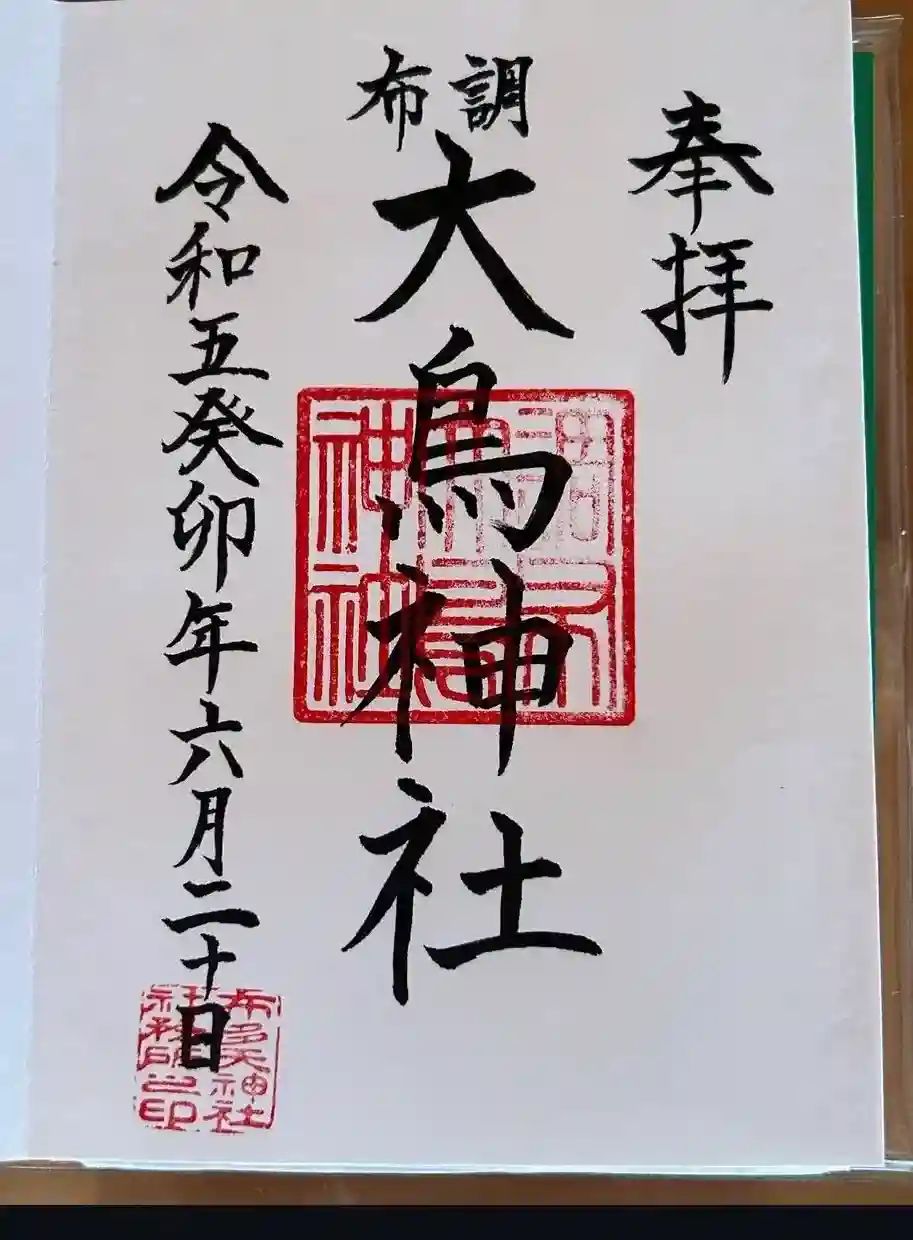 奉拝
調布
大鳥神社
令和五癸卯年六月二十日
調布大鳥神社
布多天神社
社務所之印